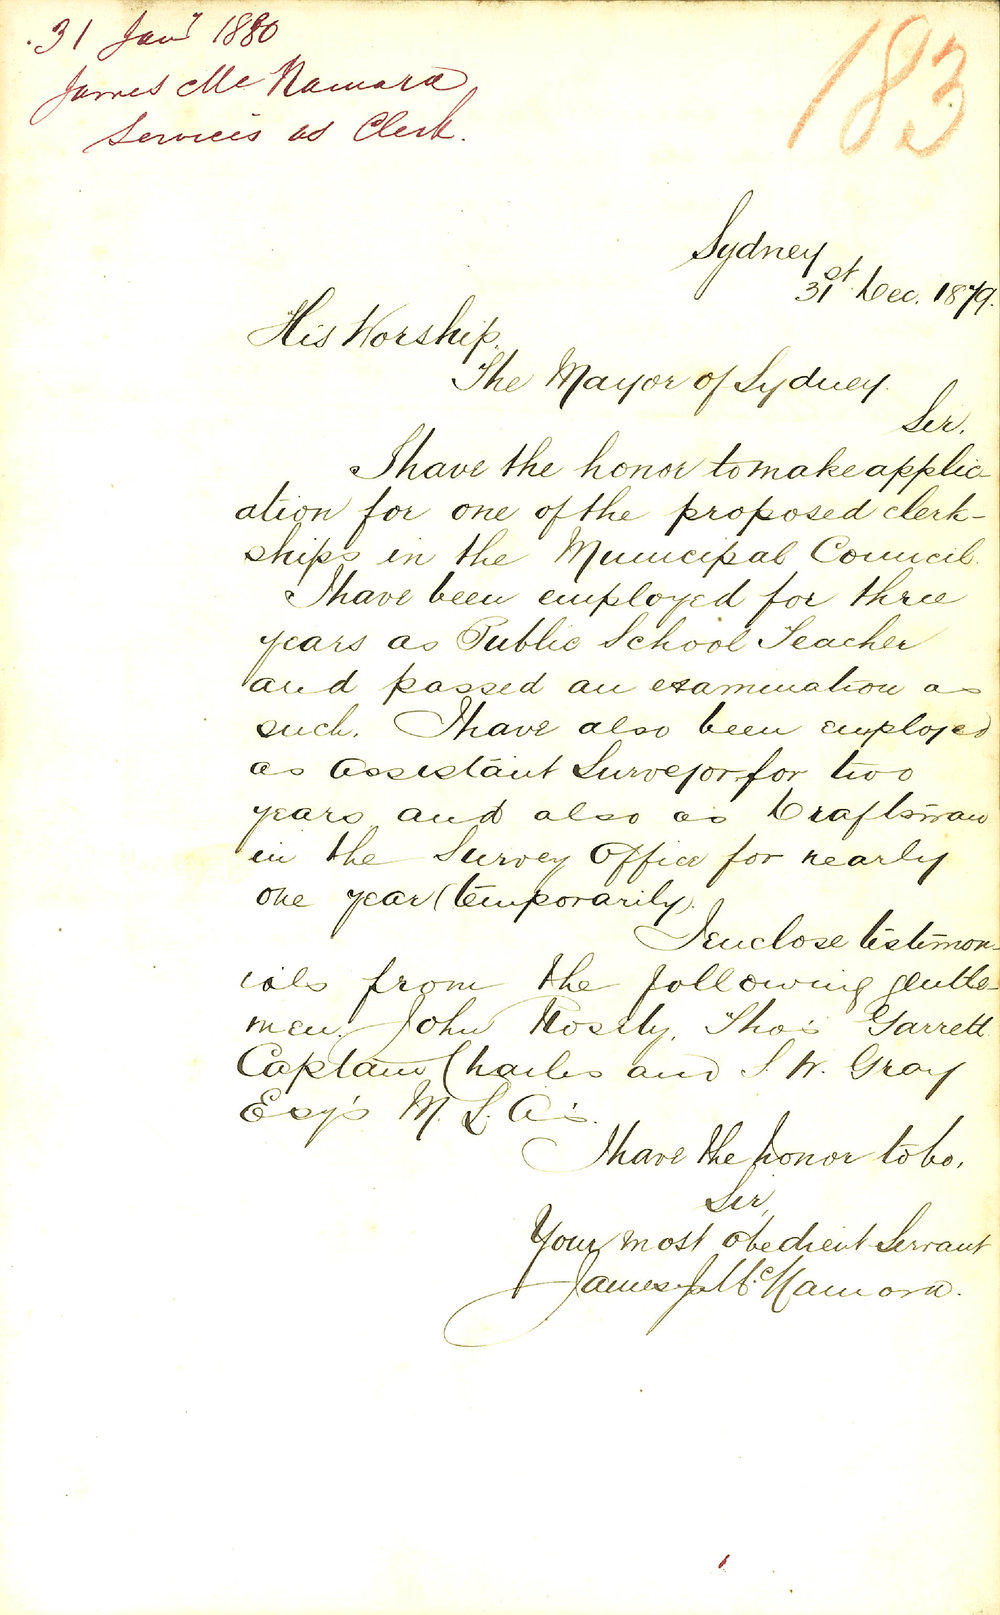 31 Jany 1880
James McNamara
Services as Clerk.
183
Sydney
31st Dec. 1879.
His Worship.
The Mayor of Sydney.
Sir.
I have the honor to make applic
ation for one of the proposed clerk-
ships in the Municipal Council.
I have been employed for three
years as Public School Teacher
and passed an examination as
such. I have also been employed
as Assistant Surveyor for two
years and also as Draftsman
in the Survey Office for nearly
one year (temporarily).
I enclose testimon-
ials from the following gentle-
men. John Thos Garrett
Captain Charles and S. W. Gray
Esq's M. L. A's.
I have the honor to be,
Sir,
Your most obedient Servant
James J. McNamara.